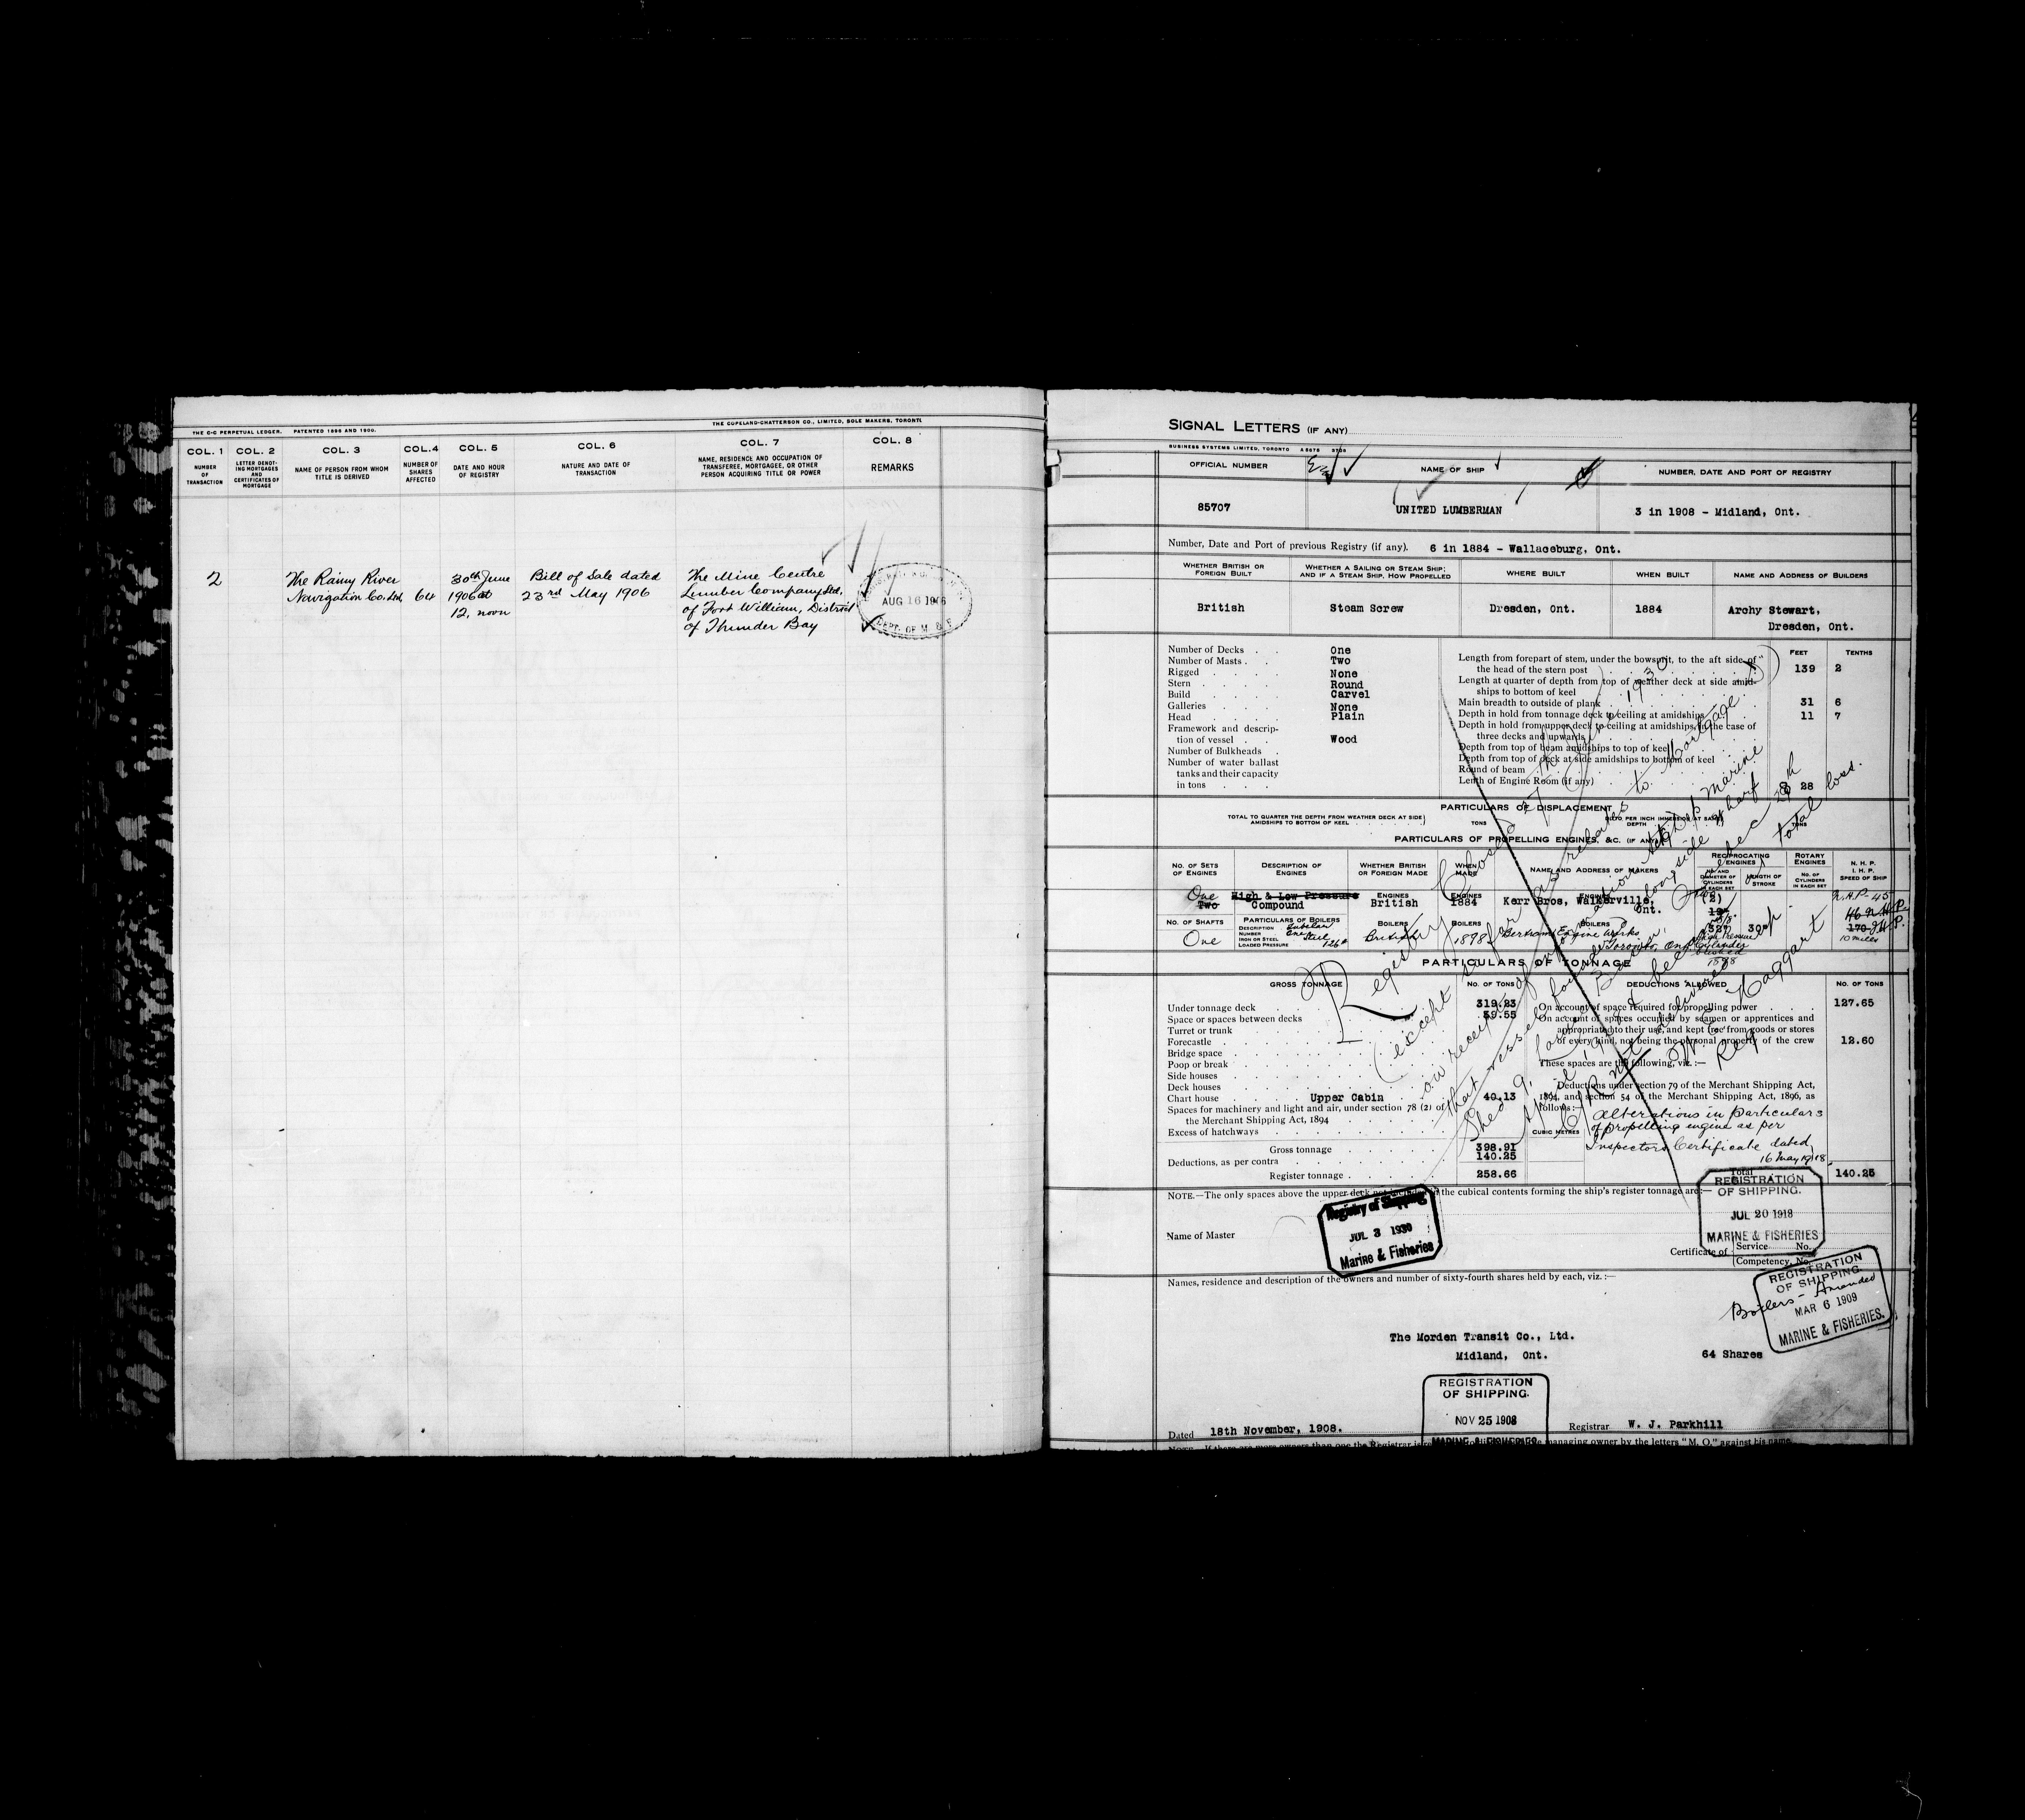 THE C-C PERPETUAL LEDGER. PATENTED 1898 AND 1900. THE COPELAND-CHATTERSON CO., LIMITED, SOLE MAKERS, TORONTO
COL. 1 COL. 2 COL. 3 COL. 4 COL. 5 COL. 6 COL. 7 COL. 8
NUMBER OF TRANSACTION
LETTER DENOTING MORTGAGES AND CERTIFICATES OF MORTGAGE
NAME OF PERSON FROM WHOM TITLE IS DERIVED
NUMBER OF SHARES AFFECTED
DATE AND HOUR OF REGISTRY
NATURE AND DATE OF TRANSACTION
NAME, RESIDENCE AND OCCUPATION OF TRANSFEREE, MORTGAGEE, OR OTHER PERSON ACQUIRING TITLE OR POWER
REMARKS
2 The Rainy River 30th June Bill of Sale dated The Mine Centre
Navigation Co. Ltd. 64 1906 at 23rd May 1906 Lumber Company Ltd.
12, noon of Fort William, District
of Thunder Bay
AUG 16 1906
DEPT. OF M & F
SIGNAL LETTERS (IF ANY)
BUSINESS SYSTEMS LIMITED, TORONTO
OFFICIAL NUMBER NAME OF SHIP NUMBER, DATE AND PORT OF REGISTRY
85707 UNITED LUMBERMAN 3 in 1908 - Midland, Ont.
Number, Date and Port of previous Registry (if any). 6 in 1884 - Wallaceburg, Ont.
WHETHER BRITISH OR FOREIGN BUILT
WHETHER A SAILING OR STEAM SHIP; AND IF A STEAM SHIP, HOW PROPELLED
WHERE BUILT WHEN BUILT NAME AND ADDRESS OF BUILDERS
British Steam Screw Dresden, Ont. 1884 Archy Stewart,
Dresden, Ont.
Number of Decks One
Number of Masts Two
Rigged None
Stern Round
Build Carvel
Galleries None
Head Plain
Framework and description of vessel Wood
Number of Bulkheads
Number of water ballast tanks and their capacity in tons
FEET TENTHS
Length from forepart of stem, under the bowsprit, to the aft side of the head of the stern post 139 2
Length at quarter of depth from top of weather deck at side amidships to bottom of keel
Main breadth to outside of plank 31 6
Depth in hold from tonnage deck to ceiling at amidships 11 7
Depth in hold from upper deck to ceiling at amidships, in the case of three decks and upwards
Depth from top of beam amidships to top of keel
Depth from top of deck at side amidships to bottom of keel
Round of beam
Lenth of Engine Room (if any) 28
PARTICULARS OF DISPLACEMENT
TOTAL TO QUARTER THE DEPTH FROM WEATHER DECK AT SIDE AMIDSHIPS TO BOTTOM OF KEEL TONS
PARTICULARS OF PROPELLING ENGINES, &C. (IF ANY)
NO. OF SETS OF ENGINES
DESCRIPTION OF ENGINES
WHETHER BRITISH OR FOREIGN MADE
WHEN MADE
NAME AND ADDRESS OF MAKERS
RECIPROCATING ENGINES
LENGTH OF STROKE
ROTARY ENGINES
NO. OF CYLINDERS IN EACH SET
N. H. P.
I. H. P.
SPEED OF SHIP
One High & Low Pressure ENGINES ENGINES N.H.P - 45
Two Compound British 1884 Kerr Bros, Walkerville, Ont. (2)
NO. OF SHAFTS PARTICULARS OF BOILERS BOILERS BOILERS BOILERS
DESCRIPTION
NUMBER
IRON OR STEEL Steel
LOADED PRESSURE
One British 1898 Bertram Engine Works Toronto, Ont. 10 miles
PARTICULARS OF TONNAGE
GROSS TONNAGE NO. OF TONS DEDUCTIONS ALLOWED NO. OF TONS
Under tonnage deck 319.23
Space or spaces between decks 39.55
Turret or trunk
Forecastle
Bridge space
Poop or break
Side houses
Deck houses
Chart house Upper Cabin 40.13
Spaces for machinery and light and air, under section 78 (2) of the Merchant Shipping Act, 1894
Excess of hatchways
Gross tonnage 398.91
Deductions, as per contra 140.25
Register tonnage 258.66
On account of space required for propelling power 127.65
On account of spaces occupied by seamen or apprentices and appropriated to their use, and kept free from goods or stores of every kind, not being the personal property of the crew 12.60
These spaces are the following, viz.:—
Deductions under section 79 of the Merchant Shipping Act, 1894, and section 54 of the Merchant Shipping Act, 1896, as follows:—
CUBIC METRES
Alterations in particulars
of propelling engine as per
Inspectors Certificate dated
16 May 1918
Total 140.25
Registry Closed 27th June 1930
(except so far as relates to Mortgage
NOTE.—The only spaces above the upper deck not included in the cubical contents forming the ship's register tonnage are:—
Registry of Shipping
JUL 3 1930
Marine & Fisheries
REGISTRATION
OF SHIPPING.
JUL 20 1918
MARINE & FISHERIES
Name of Master
Certificate of Service No.
Competency, No.
REGISTRATION
OF SHIPPING
Boilers - Amended
MAR 6 1909
MARINE & FISHERIES.
Names, residence and description of the owners and number of sixty-fourth shares held by each, viz.:—
The Morden Transit Co., Ltd.
Midland, Ont. 64 Shares
REGISTRATION
OF SHIPPING.
NOV 25 1908
MARINE & FISHERIES
Dated 18th November, 1908. Registrar W. J. Parkhill